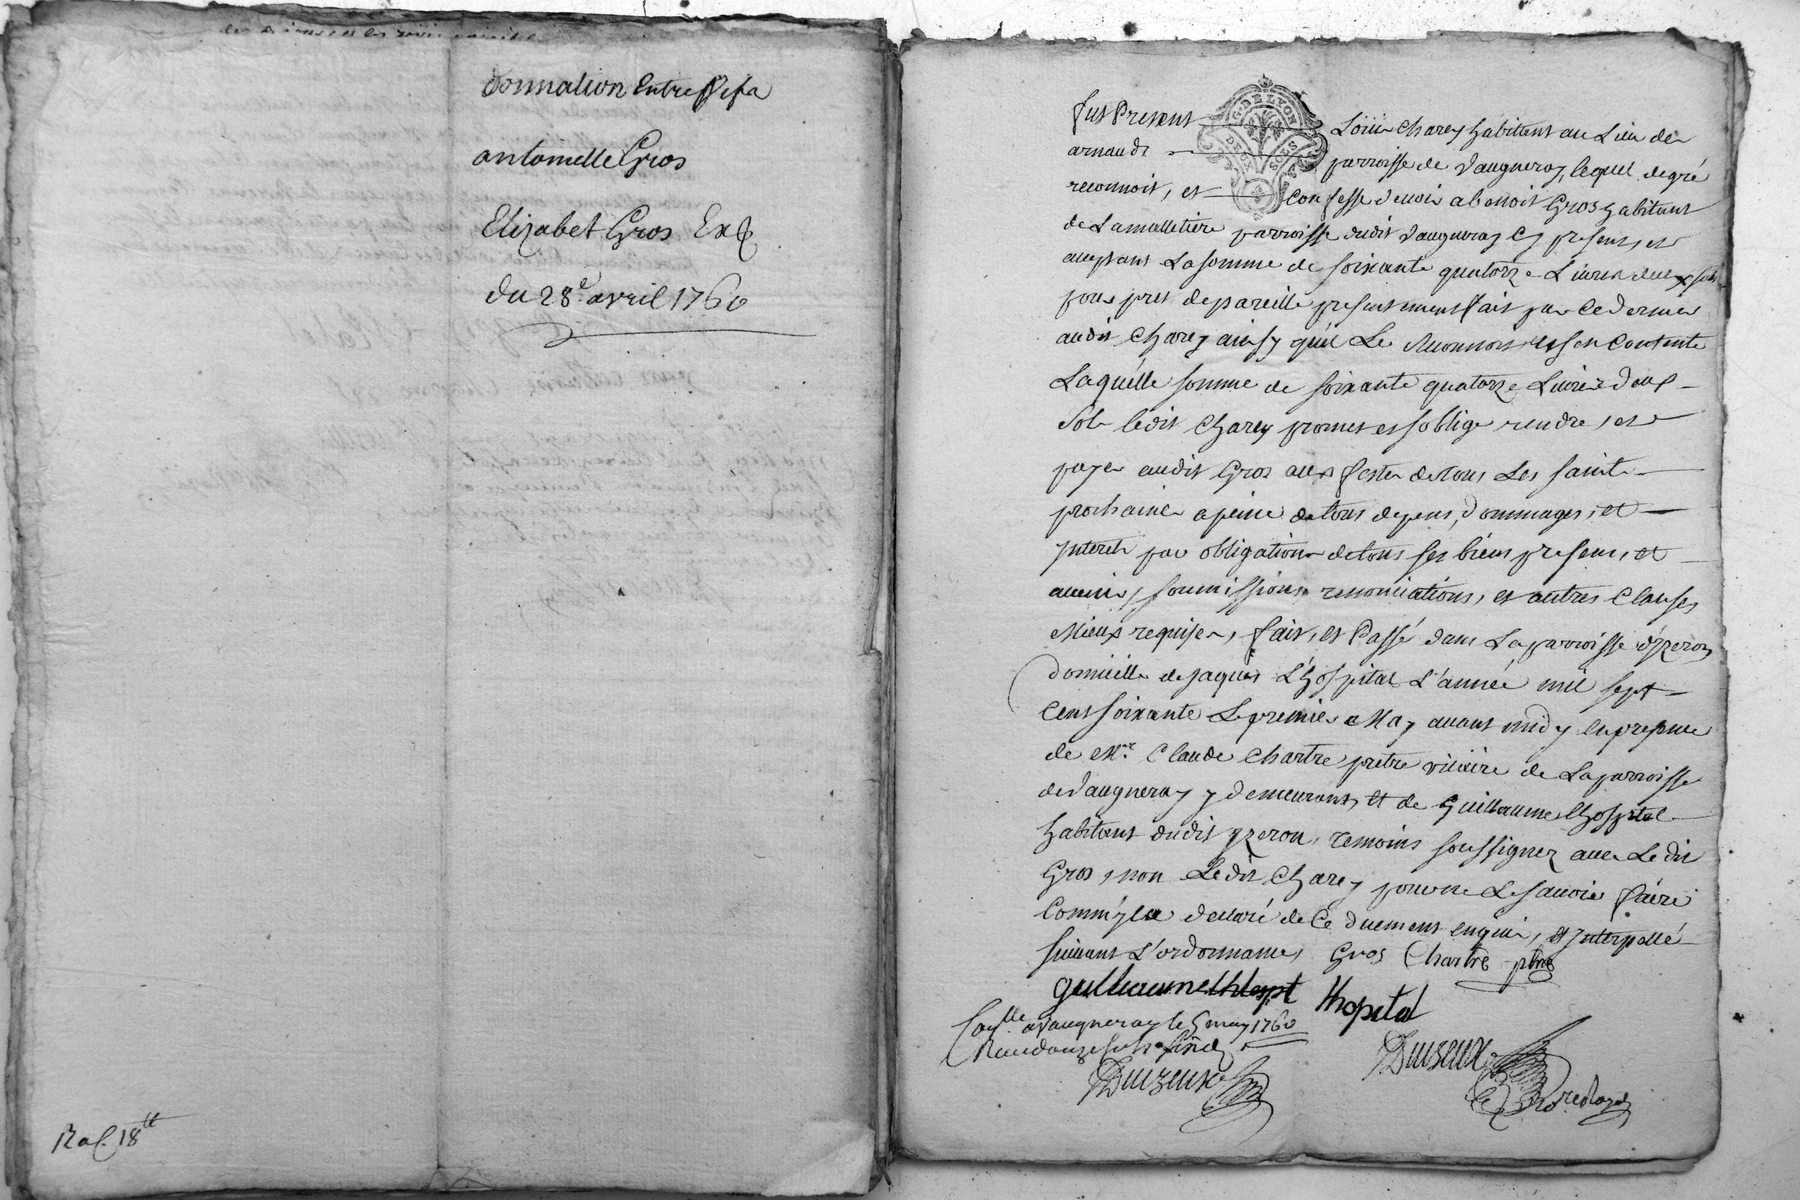 donnation Entre vifs
antoinette Gros
Elizabet Gros Ex
du 28e avril 1760
Rol. 18
G. DE LYON
DEUX SOLS
fut Present Loüis Charey habitant au Lieu de
arnaud parroisse de Vaugneray, lequel de gré
reconnoit, et confesse devoir a benoit Gros habitant
de Lamalletiere parroisse dudit Vaugneray Cy present, et
acceptant La somme de soixante quatorze Livres deux sols
pour prest de pareille presentement fait par Ce dernier
audit Charey ainsy qu'il Le reconnoit et s'en Contente
Laquelle somme de soixante quatorze Livres deux
sols ledit Charey promet et s'oblige rendre, et
payer audit Gros aux festes de tous Les saints
prochaines a peine de tous depens, dommages, et
interets par obligation de tous ses biens presens, et
avenir, soumissions, renonciations, et autres Clauses
Mieux requises, fait, et Passé dans La parroisse d'yzeron
domicille de jaques L'hospital L'année mil sept
Cent soixante Le premier May avant midy en presence
de Mre Claude Chartre prêtre vicaire de La parroisse
de Vaugneray y demeurant, et de Guillaume Lhospital
habitant dudit yzeron, temoins soussignez avec Le dit
Gros, non Ledit Charey pour ne Le savoir faire
Comm'yl a declaré de Ce duement enquis, et Interpellé
suivant L'ordonnance, Gros Chartre ptre
guillaume lhospt lhopital
Conlle a Vaugneray le 5 may 1760
Reçu douze sols
Duizeux
Duiseux